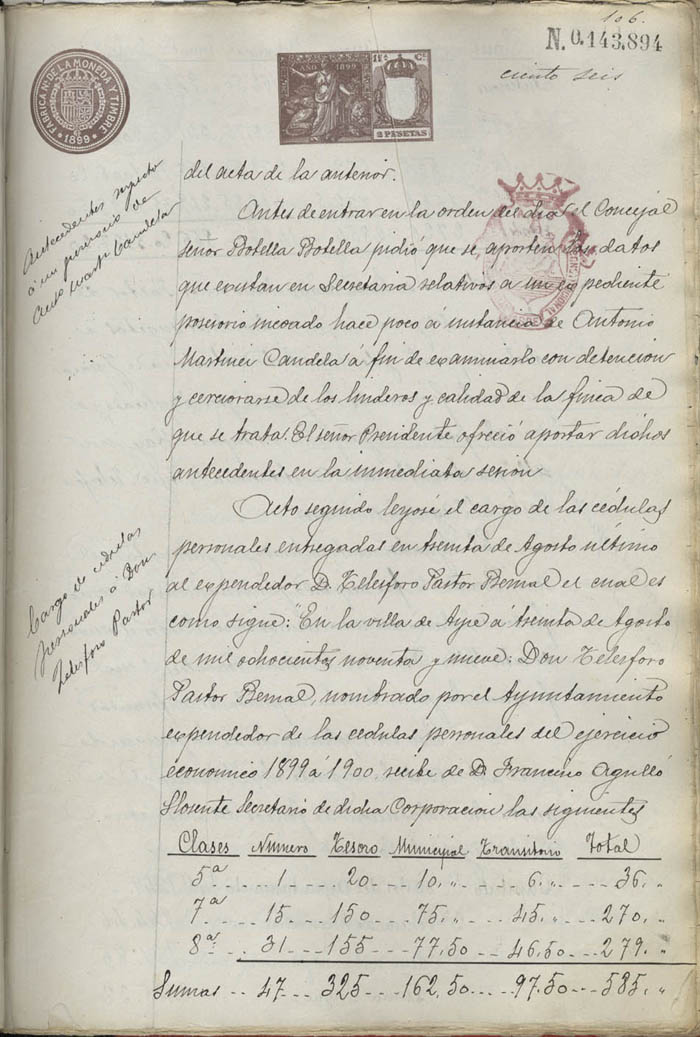 106.
N. 0.143.894
ciento seis
FABRICA NAL DE LA MONEDA Y TIMBRE
1899
AÑO 1899
11ª Cª
2 PESETAS
Antecedentes respecto
á un posesorio de
Antº Martz Candela
del acta de la anterior.
Antes de entrar en la orden del dia el Concejal
señor Botella Botella pidió que se aporten los datos
que existan en Secretaria relativos a un expediente
posesorio incoado hace poco á instancia de Antonio
Martinez Candela á fin de examinarlo con detencion
y cerciorarse de los linderos y calidad de la finca de
que se trata. El señor Presidente ofreció aportar dichos
antecedentes en la inmediata sesion
Cargo de cedulas
personales á Don
Telesforo Pastor
Acto seguido leyose el cargo de las cédulas
personales entregadas en treinta de Agosto último
al expendedor D. Telesforo Pastor Bernal el cual es
como sigue: "En la villa de Aspe á treinta de Agosto
de mil ochocientos noventa y nueve: Don Telesforo
Pastor Bernal, nombrado por el Ayuntamiento
expendedor de las cedulas personales del ejercicio
economico 1899 á 1900, recibe de D. Francisco Agulló
Llorente Secretario de dicha Corporacion las siguientes
Clases Numero Tesoro Municipal Transitorio Total
5ª 1 20 10,, 6,, 36,,
7ª 15 150 75,, 45,, 270,,
8ª 31 155 77,50 46,50 279,,
Sumas 47 325 162,50 97,50 585,,